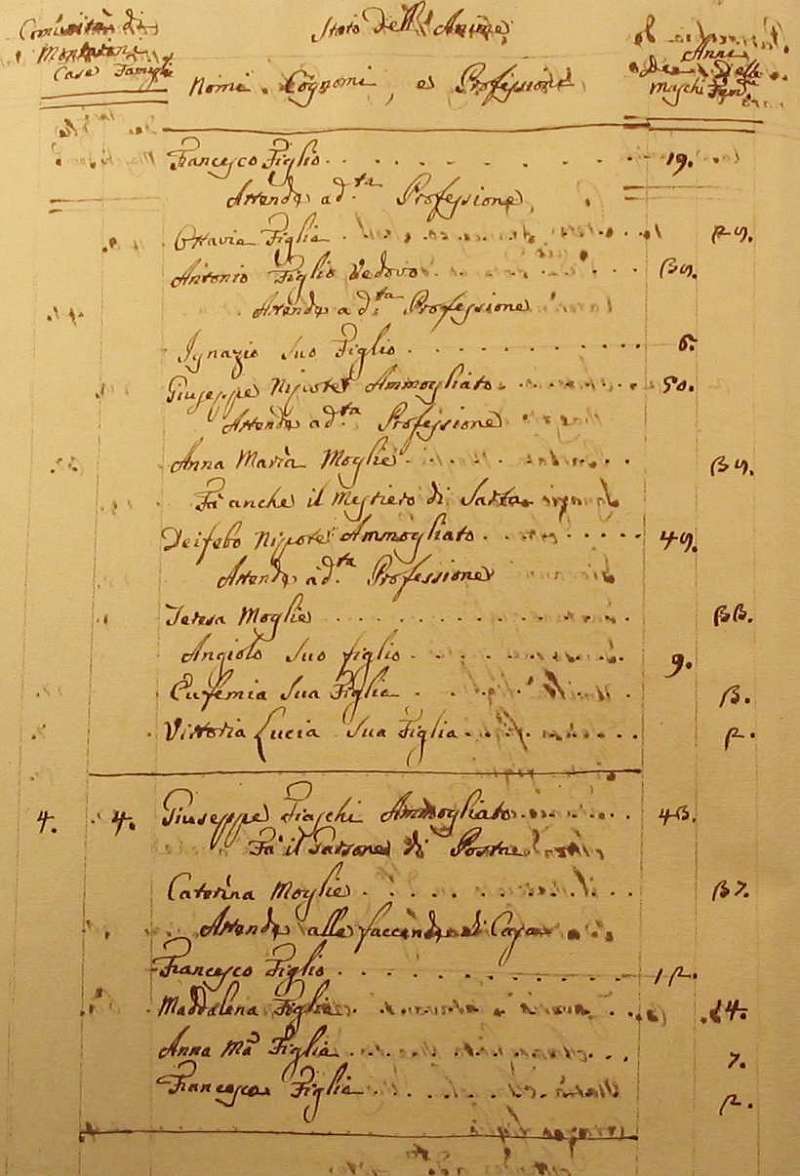 Comunità di Stato dell'Anime
Montaioni Anni
Case Famiglie Nomi, Cognomi, e Professione Maschi Femine
Francesco Figlio 19.
Attende a d.ta Professione
Ottavia Figlia 29.
Antonio Figlio Vedovo 39.
Attende a d.ta Professione
Ignazio suo Figlio 6.
Giuseppe Nipote Ammogliato 50.
Attende a d.ta Professione
Anna Maria Moglie 39.
Fà anche il Mestiero di Sarta
Deifebo Nipote Ammogliato 49.
Attende a d.ta Professione
Teresa Moglie 33.
Angiolo suo figlio 9.
Eufemia sua Figlia 3.
Vittoria Lucia sua Figlia 2.
4. 4. Giuseppe Fiaschi Ammogliato 43.
Fà il Garzone di Posta
Caterina Moglie 37.
Attende alle faccende di Casa
Francesco Figlio 12.
Maddalena Figlia 14.
Anna Ma Figlia 7.
Francesca Figlia 2.